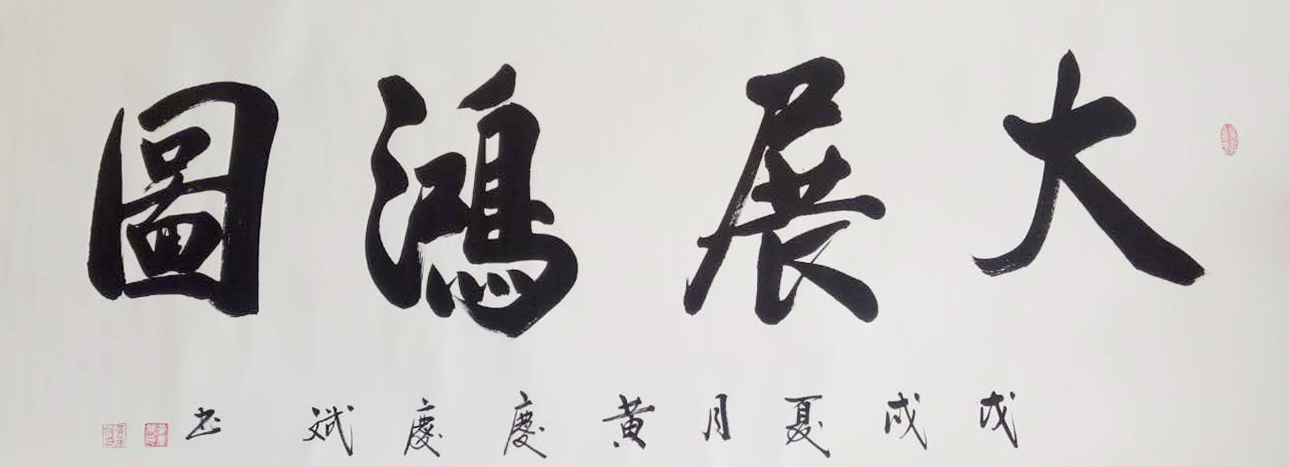 大展鴻圖
戊戌夏月黄慶慶斌书